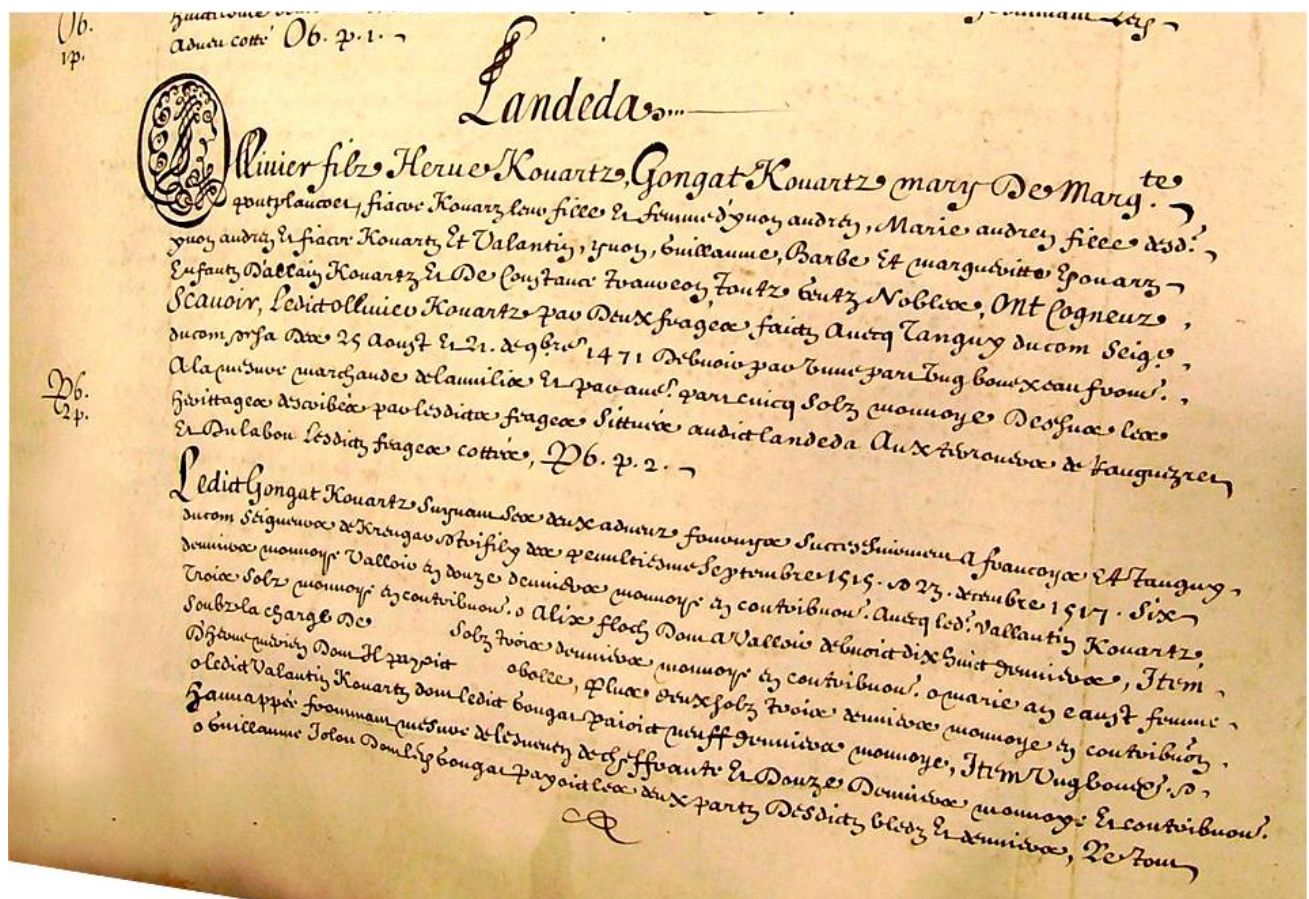 Adueu cotté O6. p. 1.
O6.
1p.
Landeda
Ollinier filz Herue Kouartz, Gongat Kouartz mary De Marg.te
pontplancoet, fiacre Kouarz leur fille Et femme d'yuon andren, Marie andren fille desd.
yuon andren Et fiacre Kouartz Et Valantin, yuon, Guillaume, Barbe Et margueritte Epouarz
Enfantz D'allain Kouartz Et De Constance Toutz Gentz Nobles, Ont Cogneuz
Scauoir, Ledict Ollinier Kouartz par Deux frages faictz Auecq Tanguy ducom Seig.r
ducom Des 25 Aoust Et 21. de 9bre 1471 Debuoir par vnne part Vng bouexeau from.
A la mesure marchande de lannilis Et par au. part cincq Solz monnoye Dessus les
P6.
2p.
herittages describés par lesdictz frages Sittués audict landeda Aux terrouers de
Et Dulabou Lesdictz frages cottés, P6. p. 2.
Ledict Gongat Kouartz Suiuant Ses deux adueuz fournys Successiuement A francoys Et Tanguy
ducom Seigneurs de des penultiesme Septembre 1515. 23. decembre 1517. Six
denniers monnoye Valloir En douze denniers monnoye En contribuon. Auecq led. Vallantin Kouartz,
Trois Solz monnoye En contribuon. o Alix floch Dom A Valloir debuoict dix huict denniers, Item
Soubz la charge De Solz trois denniers monnoye En contribuon. o marie an eaust femme
D'herue merien Dom Il payoict obolle, Plus deux solz trois denniers monnoye En contribuon
o Ledict Valantin Kouartz dom ledict Gongat paioict neuff denniers monnoye, Item Vng bouex.
hannappée frommant mesure de lesneuen de cheffrante Et Douze Denniers monnoye Et contribuon.
o Guillaume Jolou Dom led. Gongat payoict les deux partz Desdictz bledz Et denniers, Le tout